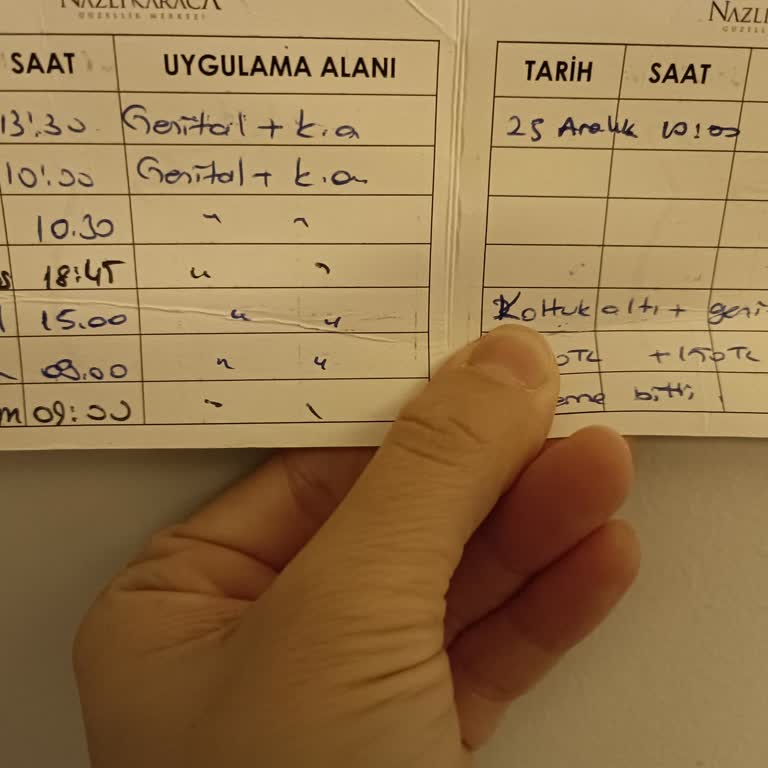 NAZLI KARACA
GÜZELLİK MERKEZİ
SAAT UYGULAMA ALANI
13:30 Genital + k.a
10:00 Genital + k.a
10.30 " "
18:45 " "
15.00 " "
09.00 " "
09:00 " "
NAZLI
GÜZELL
TARİH SAAT
25 Aralık 10:00
Koltuk altı + geni
0TL +150TL
eme bitti